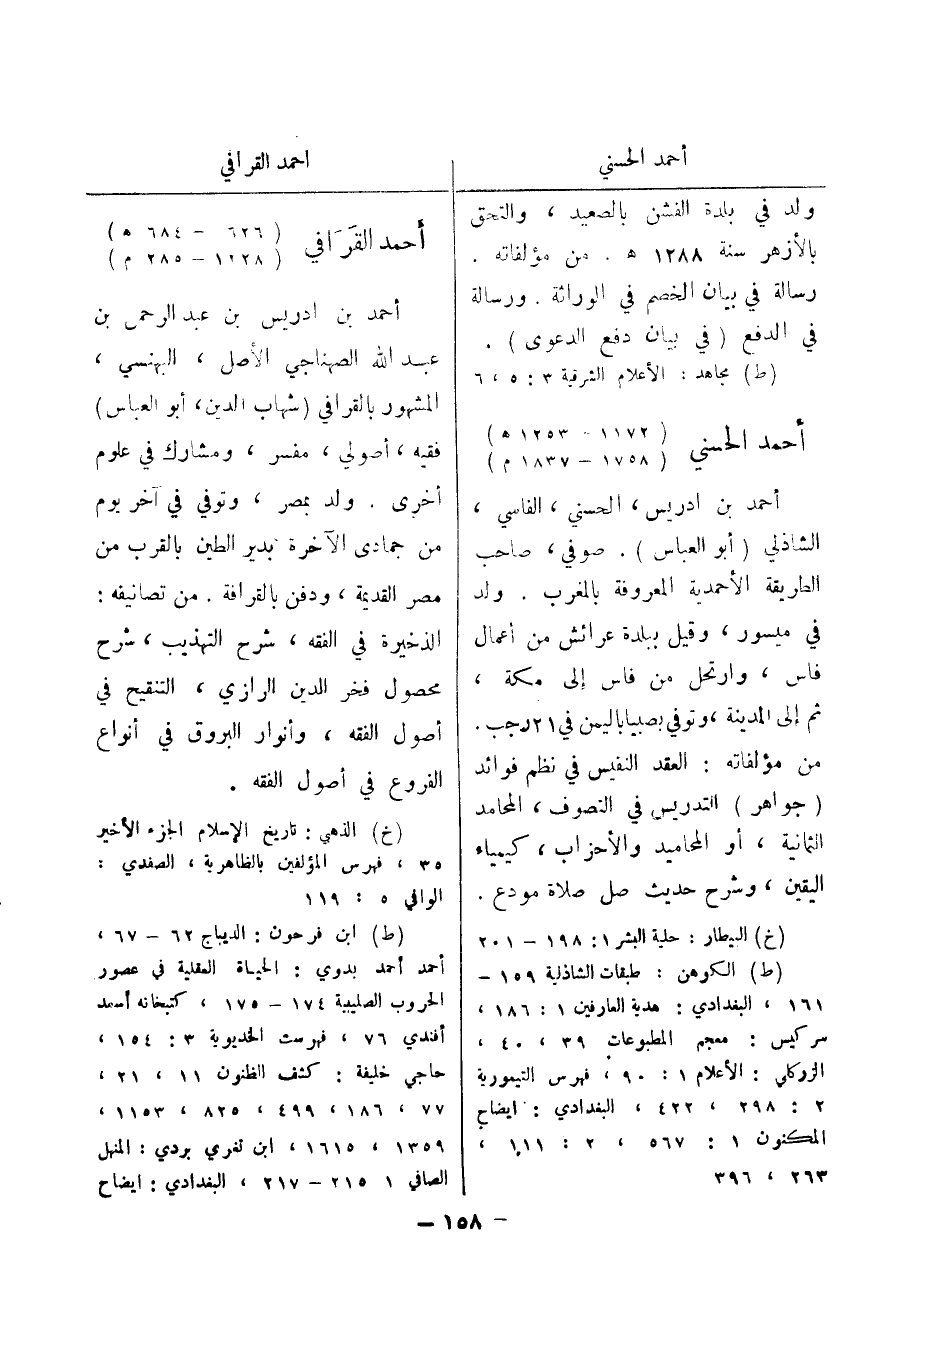 أحمد الحسني
ولد في بلدة الفشن بالصعيد ، والتحق
بالأزهر سنة ١٢٨٨ ه . من مؤلفاته .
رسالة في بيان الخصم في الوراثة . ورسالة
في الدفع ( في بيان دفع الدعوى ) .
(ط) مجاهد : الأعلام الشرقية ٣ : ٥ ، ٦
أحمد الحسني ( ١١٧٢ - ١٢٥٣ ه )
( ١٧٥٨ - ١٨٣٧ م )
أحمد بن ادريس ، الحسني ، الفاسي ،
الشاذلي ( أبو العباس ) . صوفي ، صاحب
الطريقة الأحمدية المعروفة بالمغرب . ولد
في ميسور ، وقيل ببلدة عرائش من أعمال
فاس ، وارتحل من فاس إلى مكة ،
ثم إلى المدينة ، وتوفي بصبيا باليمن في ٢١ رجب .
من مؤلفاته : العقد النفيس في نظم فوائد
( جواهر ) التدريس في التصوف ، المحامد
الثمانية ، أو المحاميد والأحزاب ، كيمياء
اليقين ، وشرح حديث صل صلاة مودع .
(خ) البيطار : حلية البشر ١ : ١٩٨ - ٢٠١
(ط) الكوهن : طبقات الشاذلية ١٥٩ -
١٦١ ، البغدادي : هدية العارفين ١ : ١٨٦ ،
سركيس : معجم المطبوعات ٣٩ ، ٤٠ ،
الزركلي : الأعلام ١ : ٩٠ ، فهرس التيمورية
٢ : ٢٩٨ ، ٤٢٢ ، البغدادي : ايضاح
المكنون ١ : ٥٦٧ ، ٢ : ١١١ ,
٢٦٣ ، ٣٩٦
احمد القرافي
أحمد القَرَافي ( ٦٢٦ - ٦٨٤ ه )
( ١٢٢٨ - ٢٨٥ م )
أحمد بن ادريس بن عبد الرحمن بن
عبد الله الصهناجي الأصل ، البهنسي ،
المشهور بالقرافي (شهاب الدين، أبو العباس)
فقيه ، أصولي ، مفسر ، ومشارك في علوم
أخرى . ولد بمصر ، وتوفي في آخر يوم
من جمادى الآخرة بدير الطين بالقرب من
مصر القديمة ، ودفن بالقرافة . من تصانيفه :
الذخيرة في الفقه ، شرح التهذيب ، شرح
محصول فخر الدين الرازي ، التنقيح في
أصول الفقه ، وأنوار البروق في أنواع
الفروع في أصول الفقه .
(خ) الذهبي : تاريخ الإسلام الجزء الأخير
٣٥ ، فهرس المؤلفين بالظاهرية ، الصفدي :
الوافي ٥ : ١١٩
(ط) ابن فرحون : الديباج ٦٢ - ٦٧ ،
أحمد أحمد بدوي : الحياة العقلية في عصور
الحروب الصليبية ١٧٤ - ١٧٥ ، كتبخانه أسعد
أفندي ٧٦ ، فهرست الخديوية ٣ : ١٥٤ ،
حاجي خليفة : كشف الظنون ١١ ، ٢١ ،
٧٧ ، ١٨٦ ، ٤٩٩ ، ٨٢٥ ، ١١٥٣ ،
١٣٥٩ ، ١٦١٥ ، ابن تغري بردي : المنهل
الصافي ١ ٢١٥ - ٢١٧ ، البغدادي : ايضاح
- ١٥٨ -